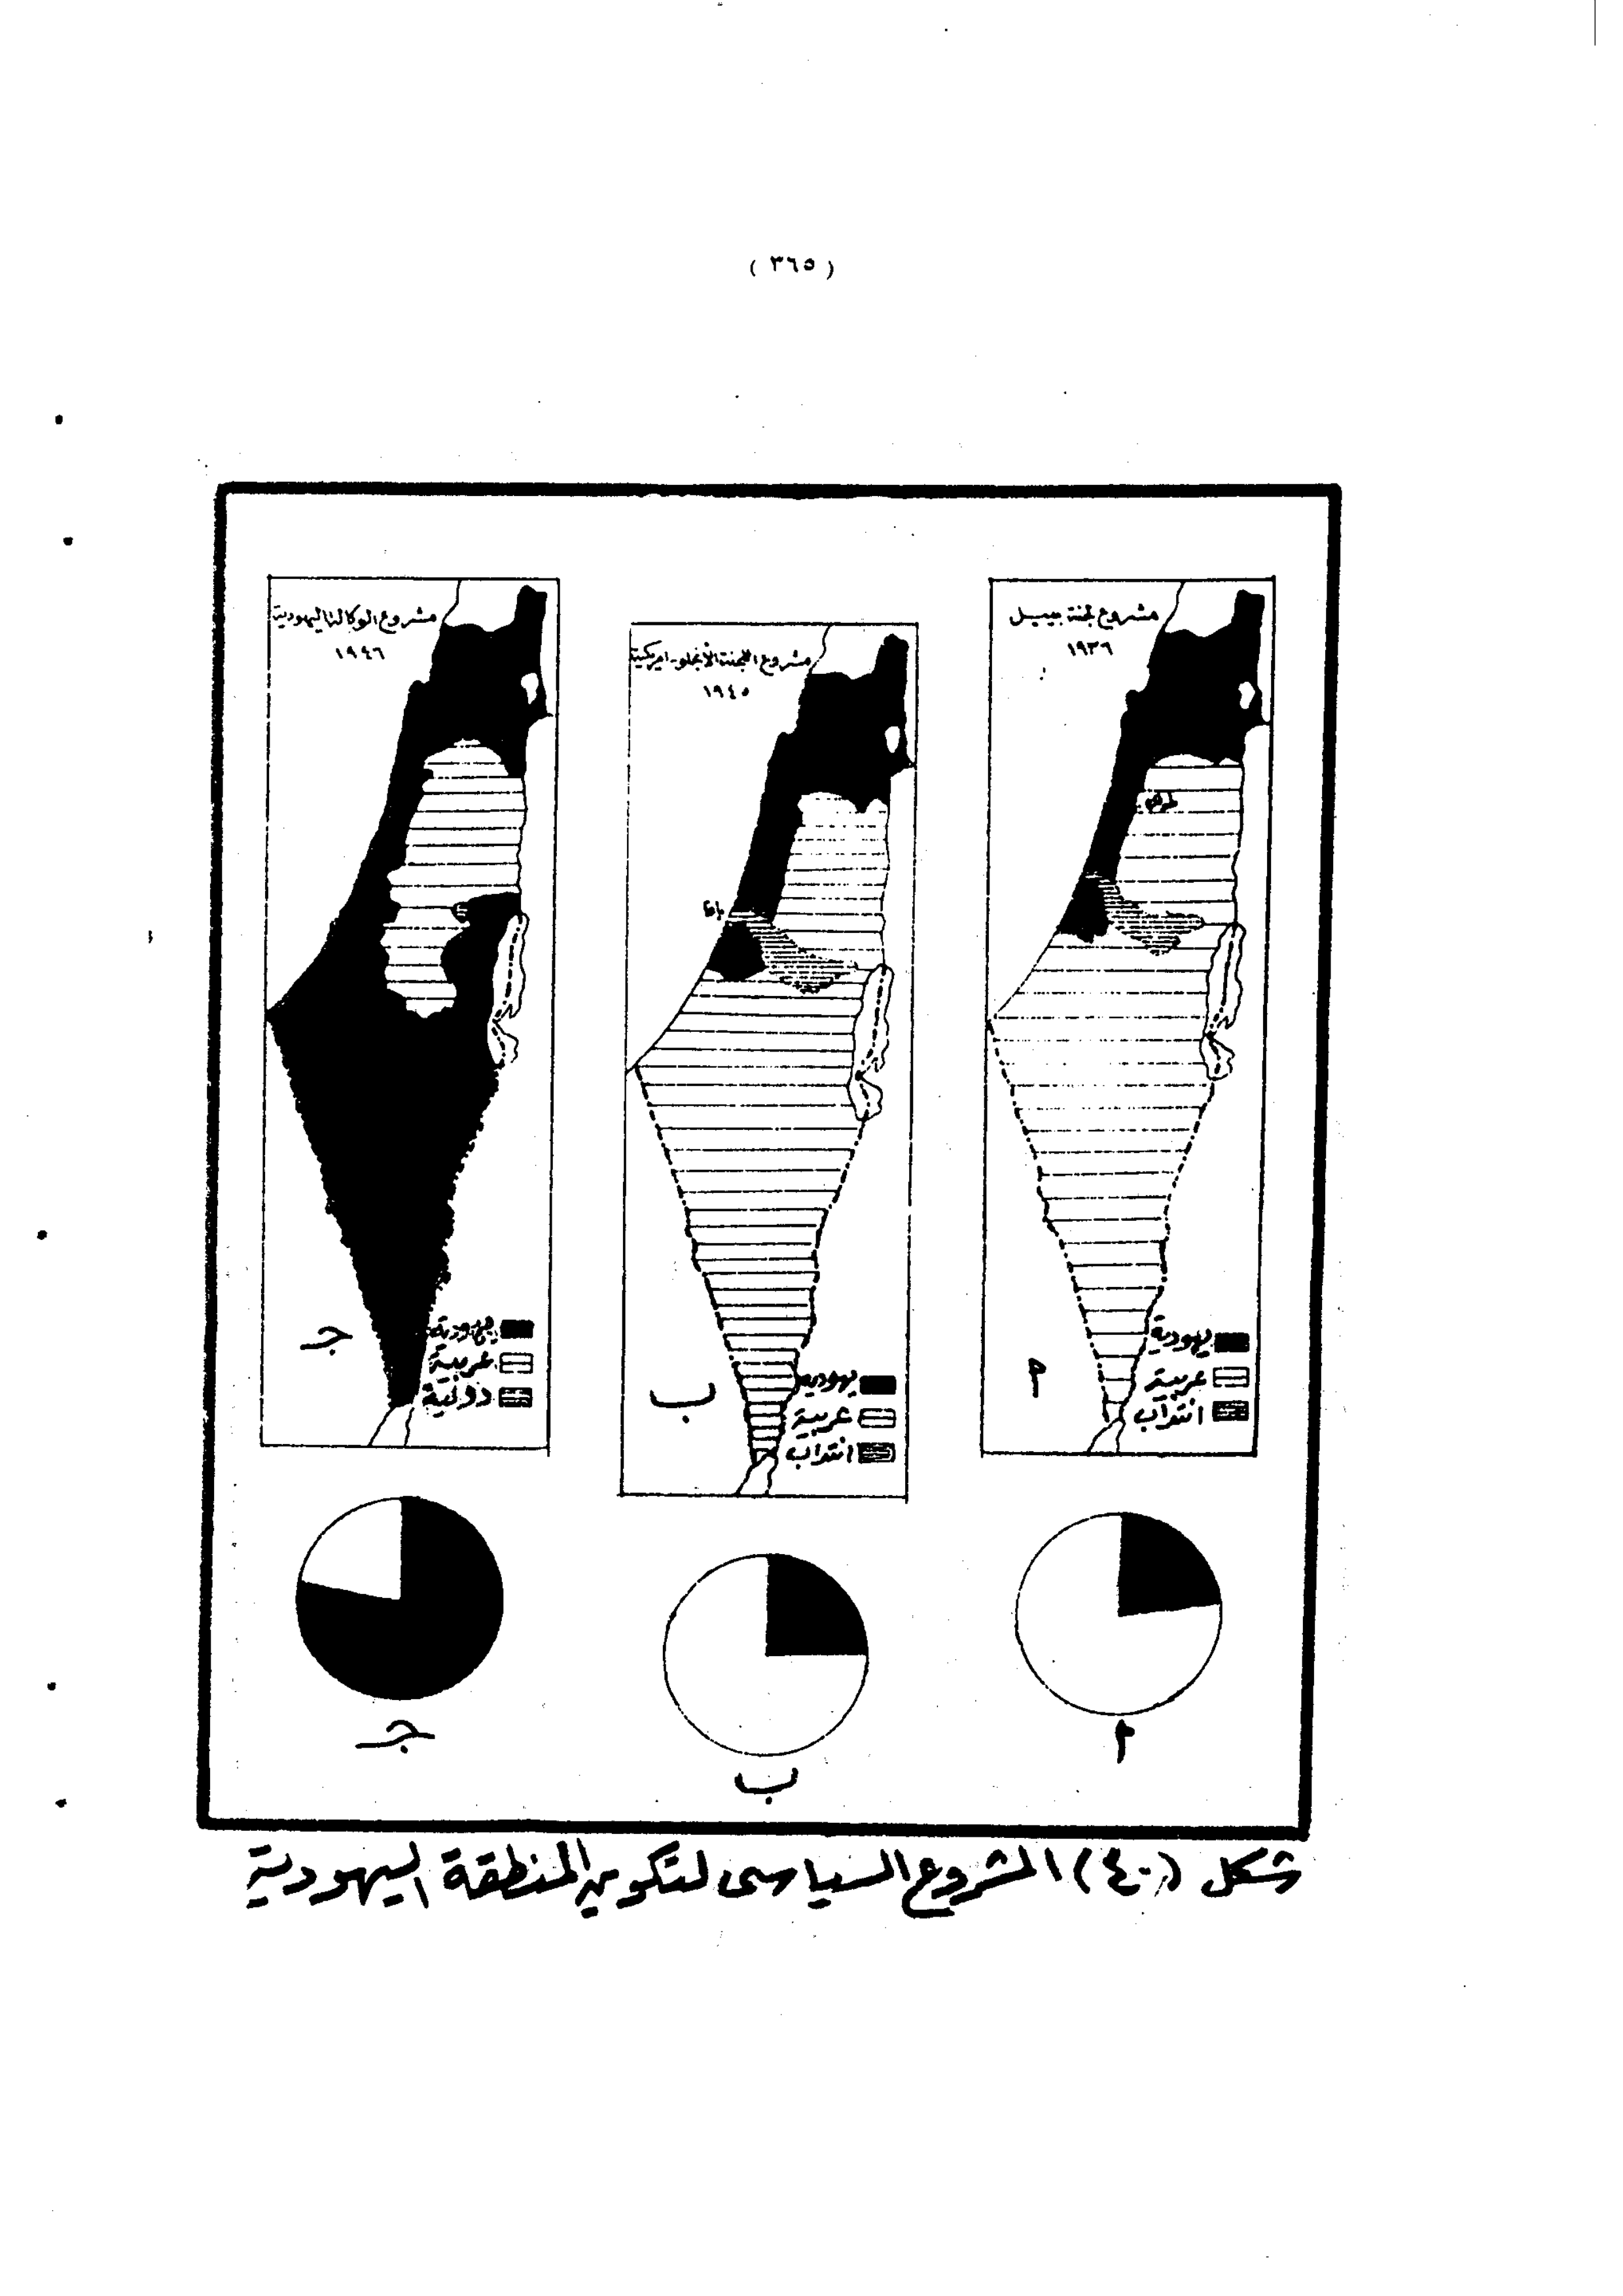 ( ٣٦٥ )
مشروع لجنة بيبيل
١٩٣٦
يهودية
عربية
انتداب
أ
مشروع اللجنة الأنجلو-امريكية
١٩٤٥
يافا
يهودية
عربية
انتداب
ب
مشروع الوكالة اليهودية
١٩٤٦
يهودية
عربية
دولية
جـ
أ
ب
جـ
شكل (٤٠) المشروع السياسى لتكوين المنطقة اليهودية